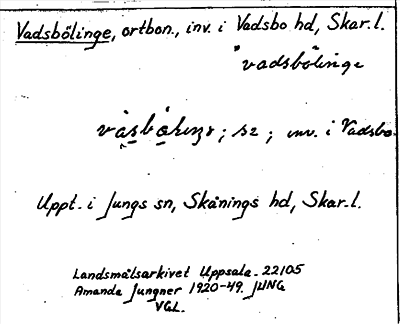 Vadsbölinge, ortbon., inv. i Vadsbo hd, Skar.l.
"vadsbölinge"
; sz ; inv. i Vadsbo.
Uppt. i Jungs sn, Skånings hd, Skar.l.
Landsmålsarkivet Uppsala. 22105
Amanda Jungner 1920-49. JUNG
VGL.